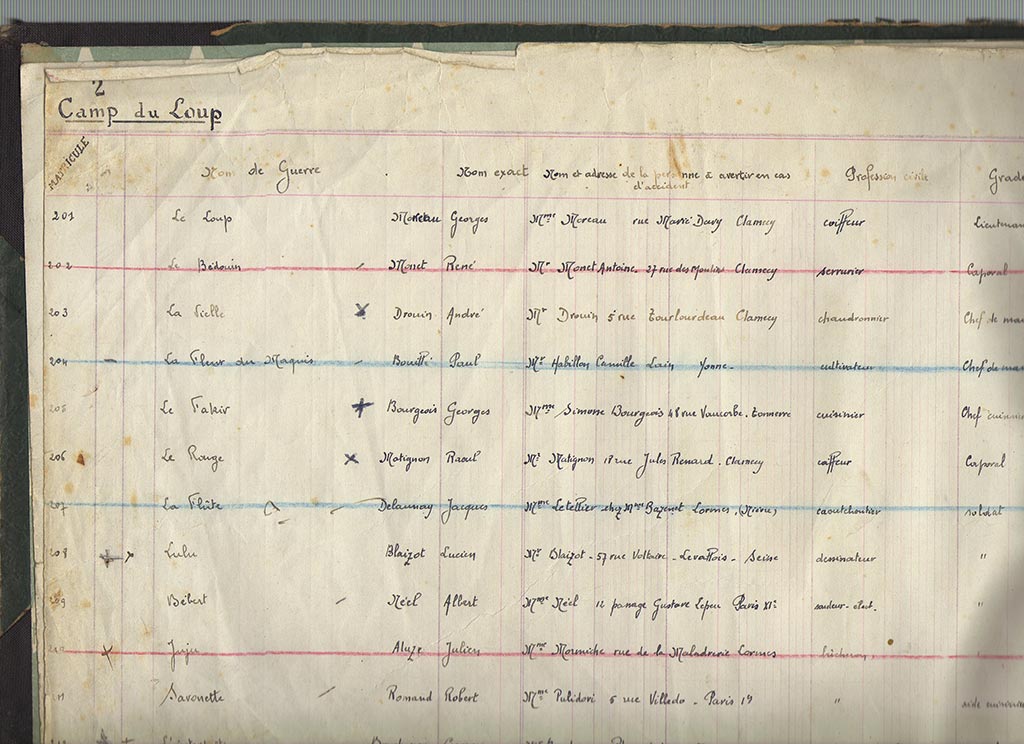 2
Camp du Loup
MATRICULE Nom de Guerre Nom exact Nom et adresse de la personne à avertir en cas d'accident Profession civile Grade
201 Le Loup Moreau Georges Mme Moreau rue Marié Davy Clamecy coiffeur Lieutenan
202 Le Bédouin Monet René Mr Monet Antoine. 27 rue des Moulins Clamecy serrurier Caporal
203 La Vielle x Drouin André Mr Drouin 5 rue Tourlourdeau Clamecy chaudronnier Chef de
204 - La Fleur du Maquis Paul Mr Habillon Camille Lain Yonne - cultivateur Chef de
205 Le Fakir + Bourgeois Georges Mme Simone Bourgeois 48 rue Vaucorbe. Tonnerre cuisinier Chef
206 Le Rouge x Matignon Raoul Mr Matignon 18 rue Jules Renard. Clamecy coiffeur Caporal
207 La Flûte Delaunay Jacques Mme Letellier chez Mme Bazenet Lormes. (Nièvre) caoutchoutier soldat
208 Lulu Blaizot Lucien Mr Blaizot - 57 rue Voltaire - Levallois - Seine dessinateur "
209 Bébert Néel Albert Mme Néel 12 passage Gustave Lepeu Paris XIe soudeur - élect. "
210 Juju Aluze Julien Mme rue de la Maladrerie Lormes bûcheron "
211 Savonette Robert Mme Pulidori 5 rue Villedo - Paris 1er "